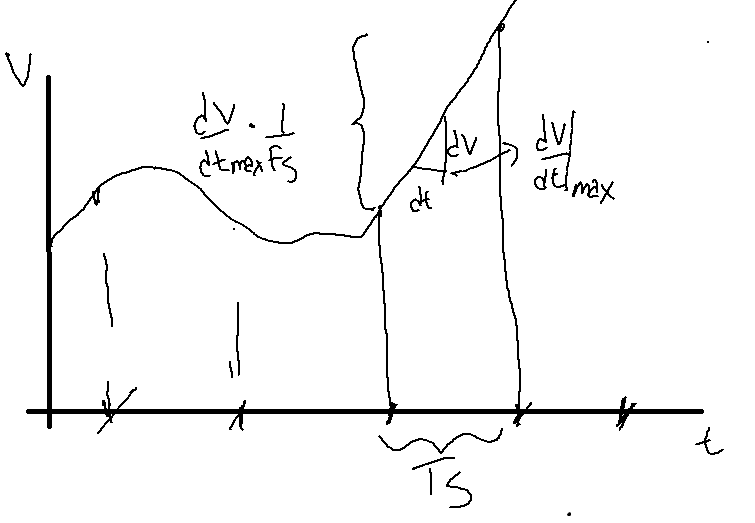 V
dV/dt max · 1/Fs
dV
dt
dV/dt|max
Ts
t